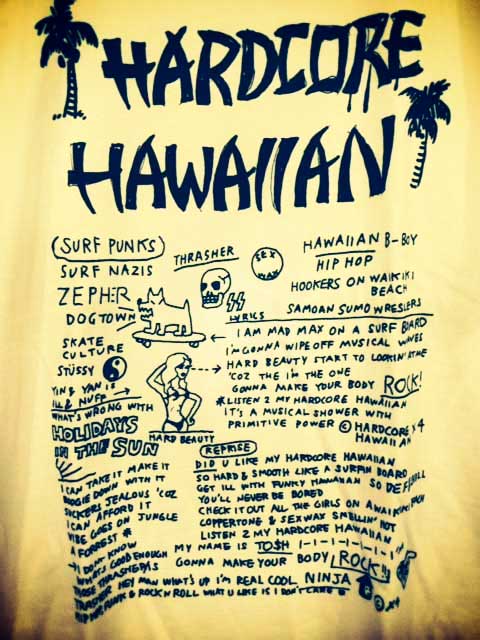 HARDCORE
HAWAIIAN
(SURF PUNKS)
SURF NAZIS
ZEPHER
DOGTOWN
SKATE
CULTURE
STÜSSY
YIN & YAN IS
ILL & NUFF
WHAT'S WRONG WITH
HOLIDAYS
IN THE SUN
THRASHER
SEX
WAX
HAWAIIAN B-BOY
HIP HOP
HOOKERS ON WAIKIKI
BEACH
SAMOAN SUMO WRESLERS
LYRICS
I AM MAD MAX ON A SURF BOARD
I'M GONNA WIPE OFF MUSICAL WAVES
HARD BEAUTY START TO LOOKIN' AT ME
'COZ THE I'M THE ONE
GONNA MAKE YOUR BODY ROCK!
*LISTEN 2 MY HARDCORE HAWAIIAN
IT'S A MUSICAL SHOWER WITH
PRIMITIVE POWER © HARDCORE X4
HAWAIIAN
HARD BEAUTY
REPRISE
DID U LIKE MY HARDCORE HAWAIIAN
SO HARD & SMOOTH LIKE A SURFIN BOARD
GET ILL WITH FUNKY HAWAIIAN SO DEF
YOU'LL NEVER BE BORED
CHECK IT OUT ALL THE GIRLS ON A WAIKIKI
COPPERTONE & SEXWAX SMELLIN' HOT
LISTEN 2 MY HARDCORE HAWAIIAN
MY NAME IS TOSH I-I-I-I-I-I-I
GONNA MAKE YOUR BODY ROCK!!
I CAN TAKE IT MAKE IT
BOOGIE DOWN WITH IT
SUCKERS JEALOUS 'COZ
I CAN AFFORD IT
VIBE GOES ON JUNGLE
A FORREST *
I DON'T KNOW
WHATS GOOD ENOUGH
THOSE THRASHERS
THRASHER HEY MAN WHAT'S UP I'M REAL COOL NINJA
HIP HOP PUNK & ROCK N ROLL WHAT U LIKE IS I DON'T CARE
X4